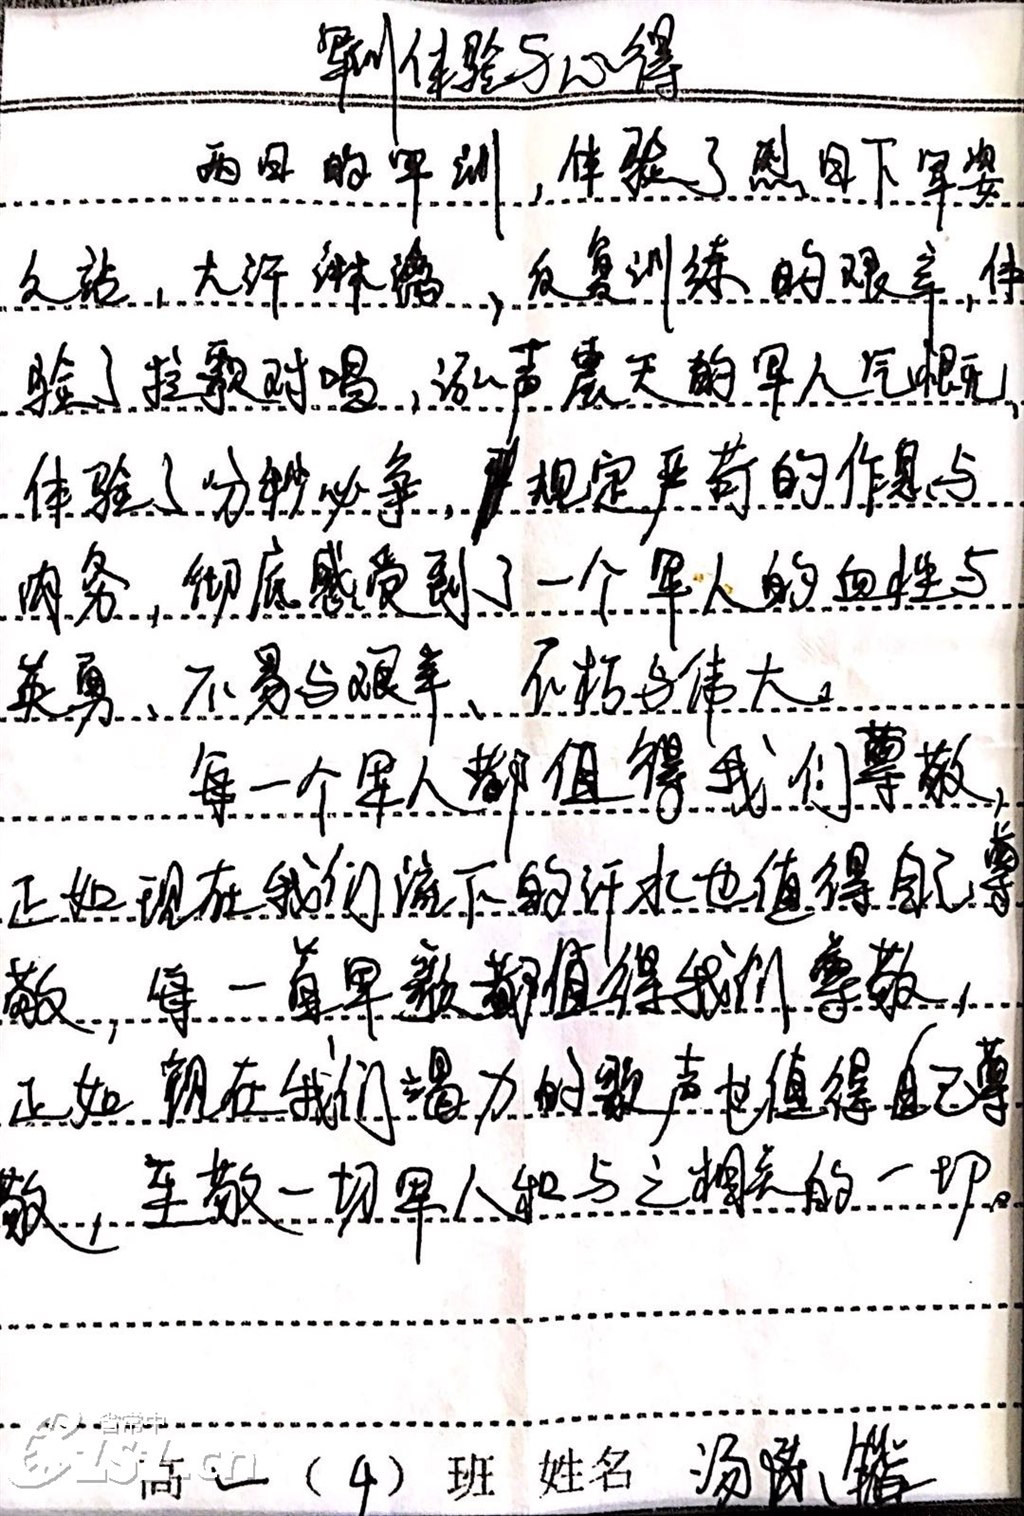 军训体验与心得
两日的军训，体验了烈日下军姿
久站，大汗淋漓，反复训练的艰辛，体
验了拉歌对唱，泓声震天的军人气慨，
体验了分秒必争，规定严苛的作息与
内务，彻底感受到了一个军人的血性与
英勇、不易与艰辛、不朽与伟大。
每一个军人都值得我们尊敬，
正如现在我们流下的汗水也值得自己尊
敬，每一首军歌都值得我们尊敬，
正如现在我们竭力的歌声也值得自己尊
敬，至敬一切军人和与之相关的一切。
省常中
LSZ.cn
高一（4）班 姓名 汤